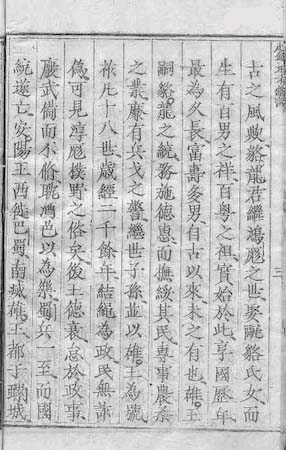 古之風歟貉龍君繼鴻厖之世娶甌貉氏女而
生有百男之祥百粤之祖實始於此享國歷年
最為久長富壽多男自古以來未之有也雄王
嗣貉龍之統務施德惠而撫綏其民專事農桑
之業靡有兵戈之警繼世子孫並以雄王為號
祚凡十八世歲經二千餘年結繩為政民無詐
偽可見淳厖樸野之俗矣後王德衰怠於政事
廢武備而不脩耽酒色以為樂蜀兵一至而國
統遂亡安陽王西徙巴蜀南滅雄王都于螺城